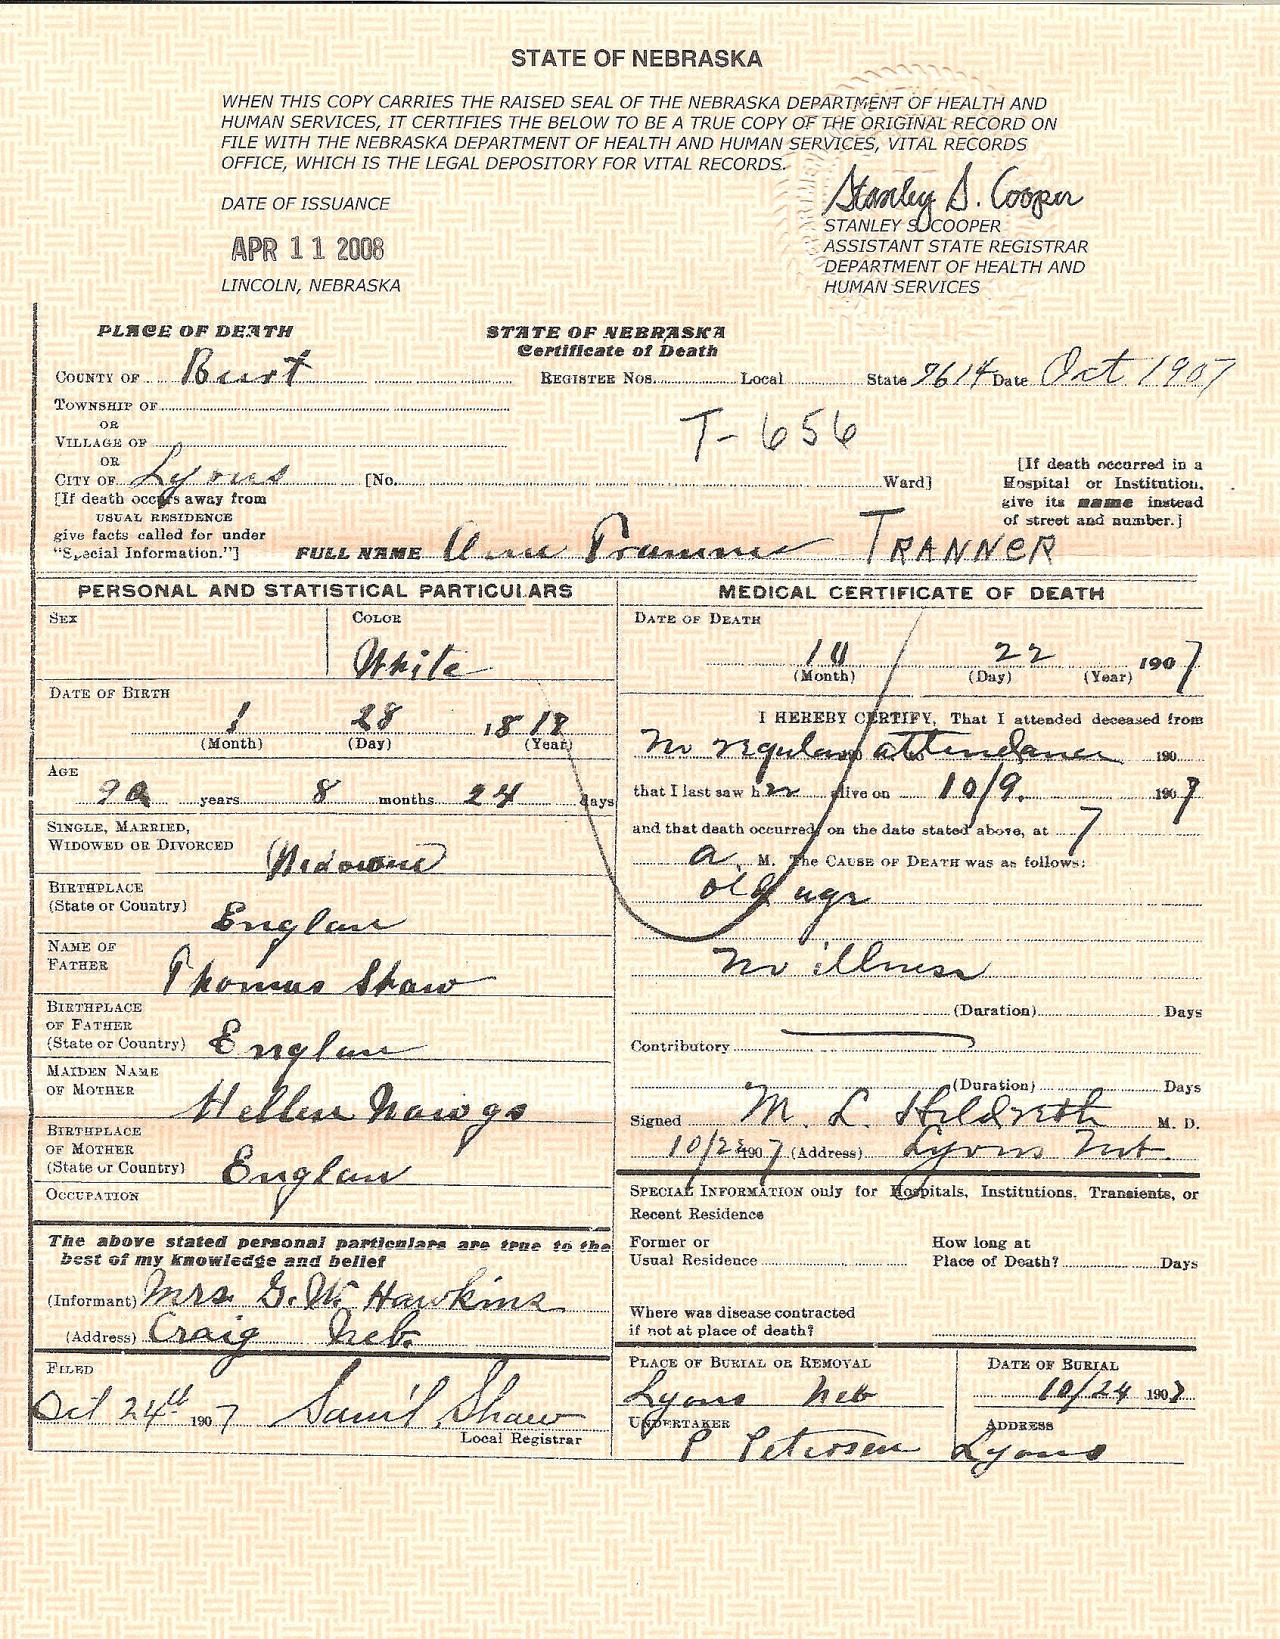 STATE OF NEBRASKA
WHEN THIS COPY CARRIES THE RAISED SEAL OF THE NEBRASKA DEPARTMENT OF HEALTH AND
HUMAN SERVICES, IT CERTIFIES THE BELOW TO BE A TRUE COPY OF THE ORIGINAL RECORD ON
FILE WITH THE NEBRASKA DEPARTMENT OF HEALTH AND HUMAN SERVICES, VITAL RECORDS
OFFICE, WHICH IS THE LEGAL DEPOSITORY FOR VITAL RECORDS.
DATE OF ISSUANCE
APR 11 2008
LINCOLN, NEBRASKA
Stanley S. Cooper
STANLEY S. COOPER
ASSISTANT STATE REGISTRAR
DEPARTMENT OF HEALTH AND
HUMAN SERVICES
PLACE OF DEATH
STATE OF NEBRASKA
Certificate of Death
COUNTY OF Burt
REGISTER NOS. Local State 7614 Date Oct 1907
TOWNSHIP OF
OR
VILLAGE OF
OR
CITY OF Lyons [No. Ward]
T-656
[If death occurred in a
Hospital or Institution,
give its name instead
of street and number.]
[If death occurs away from
USUAL RESIDENCE
give facts called for under
"Special Information."]
FULL NAME Ann TRANNER
PERSONAL AND STATISTICAL PARTICULARS
SEX
COLOR
White
DATE OF BIRTH
1 28 1818
(Month) (Day) (Year)
AGE
years 8 months 24 days
SINGLE, MARRIED,
WIDOWED OR DIVORCED
Widowed
BIRTHPLACE
(State or Country) Englan
NAME OF
FATHER
Thomas Shaw
BIRTHPLACE
OF FATHER
(State or Country) Englan
MAIDEN NAME
OF MOTHER
Hellen
BIRTHPLACE
OF MOTHER
(State or Country) Englan
OCCUPATION
The above stated personal particulars are true to the
best of my knowledge and belief
(Informant) Mrs. G. W. Hawkins
(Address) Craig Neb.
FILED
Oct 24th 1907 Saml Shaw
Local Registrar
MEDICAL CERTIFICATE OF DEATH
DATE OF DEATH
10 22 1907
(Month) (Day) (Year)
I HEREBY CERTIFY, That I attended deceased from
no regular attendance 190
that I last saw her alive on 10/9. 1907
and that death occurred, on the date stated above, at 7
a. M. The CAUSE OF DEATH was as follows:
old age
no illness
(Duration) Days
Contributory
(Duration) Days
Signed M. L. Hildreth M. D.
1907 (Address) Lyons Neb.
SPECIAL INFORMATION only for Hospitals, Institutions, Transients, or
Recent Residence
Former or
Usual Residence
How long at
Place of Death? Days
Where was disease contracted
if not at place of death?
PLACE OF BURIAL OR REMOVAL
Lyons Neb
DATE OF BURIAL
10/24 1907
UNDERTAKER
P Petersen
ADDRESS
Lyons